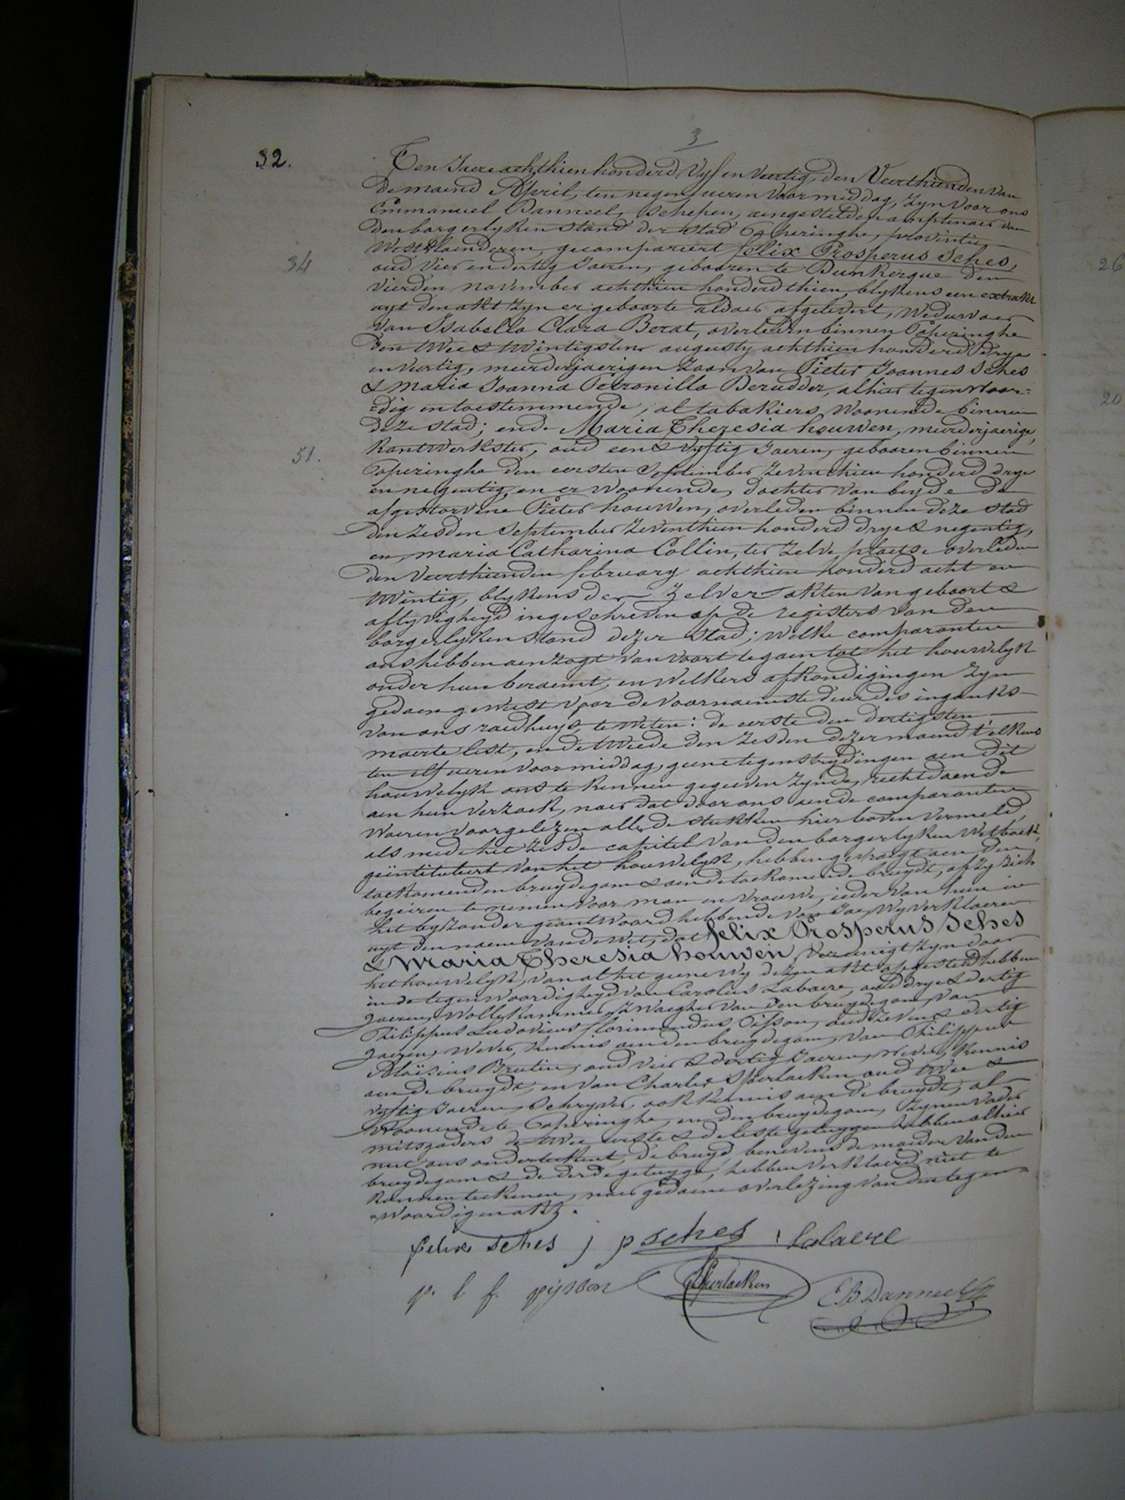 3
32.
Ten Jaere achthien honderd Vyf en Veertig, den Veerthienden van
de maend April, ten negen ueren voormiddag, zyn voor ons
Emmanuel Danneel, schepen, aengestelden amptenaer van
den borgerlyken stand der stad Poperinghe, provintie
Westvlaenderen, gecompareert felix Prosperus Sches,
34
oud Vier en dertig Jaeren, gebooren te Dunkerque den
Vierden november achthien honderd thien, blykens een extrakt
uyt den akt zyn er geboorte aldaer afgelevert, Weduwaer
Van Isabella Clara Becat, overleden binnen Poperinghe
den twee & twintigsten augusty achthien honderd Drye
en Veertig, meerderjaerigen Zoon van Pieter Joannes Sches
& Maria Joanna Petronilla Berudder, alhier tegenwoor=
dig en toestemmende, al tabakiers, Woonende binnen
deze stad; ende Maria Theresia houwen, meerderjaerige,
Kantwerkster, oud een & Vyftig Jaeren, gebooren binnen
51.
Poperinghe den eersten September zeventhien honderd drye
en negentig, en er Woonende, dochter van beyde de
afgestorvene Pieter houwen, overleden binnen deze stad
den zesden September zeventhien honderd drye & negentig,
en, maria Catharina Collin, ter zelve plaetse overleden
den Veerthienden february achthien honderd acht en
twintig, blykens der zelver akten van geboort &
aflyvigheyd ingeschreven op de registers van den
borgerlyken stand dezer stad; Welke comparanten
ons hebben aenzogt van voort te gaen tot het houwelyk
onder hun beraemt, en Welkers afkondigingen zyn
gedaen geweest voor de Voornaemste deur des ingank
van ons raedhuys te weten: de eerste den dertigsten
maerte lest, en de tweede den zesden dezer maend t'elkens
ten elf ueren Voormiddag, geene tegenstrydingen aen dit
houwelyk ons te kennen gegeven zynde, rechtdoende
aen hun verzoek, naer dat door ons aen de comparanten
Waeren Voorgelezen alle de stukken hier boven Vermeld,
als mede het zesde capitel Van den borgerlyken Wetboek,
geintituleert van het houwelyk, hebben gevraegt aen den
toekomenden bruydegom & aen de toekomende bruydt, of zy zich
begeiren te nemen voor man en vrouwe, ieder van hun in
het byzonder geantwoord hebbende Van Jae, Wy verklaeren
uyt den naem van de Wet, dat felix Prosperus Sches
& Maria Theresia houwen, Vereenigt zyn door
het houwelyk, van al het geene Wy dezen akt opgesteld hebben
in de tegenwoordigheyd van Carolus Labaere, oud drye & dertig
Jaeren, Wollekammer, Zwaeger van den bruydegom, van
Philippus Ludovicus florimondus Pisson, oud zeven & dertig
Jaeren, Wever, kennis aen den bruydegom, van Philippus
Aloïsius Brutin, oud vier & dertig Jaeren, Wever, kennis
aen de bruydt, en van Charles Sperlaeken oud twee &
vyftig Jaeren, Schryver, ook kennis aen de bruydt, al
Woonende te Poperinghe, en den bruydegom, zynen vader
mitsgaders de twee eerste & de leste getuygen hebben alhier
met ons onderteekent, de bruyd benevens de moeder van den
bruydegom & de derde getuyge, hebben verklaerd niet te
konnen teekenen, naer gedaene overlezing van den tegen-
Woordigen akt.
felix sches j p sches Labaere
p. l f. pysson Sperlaeken E.B. Danneel
26
20